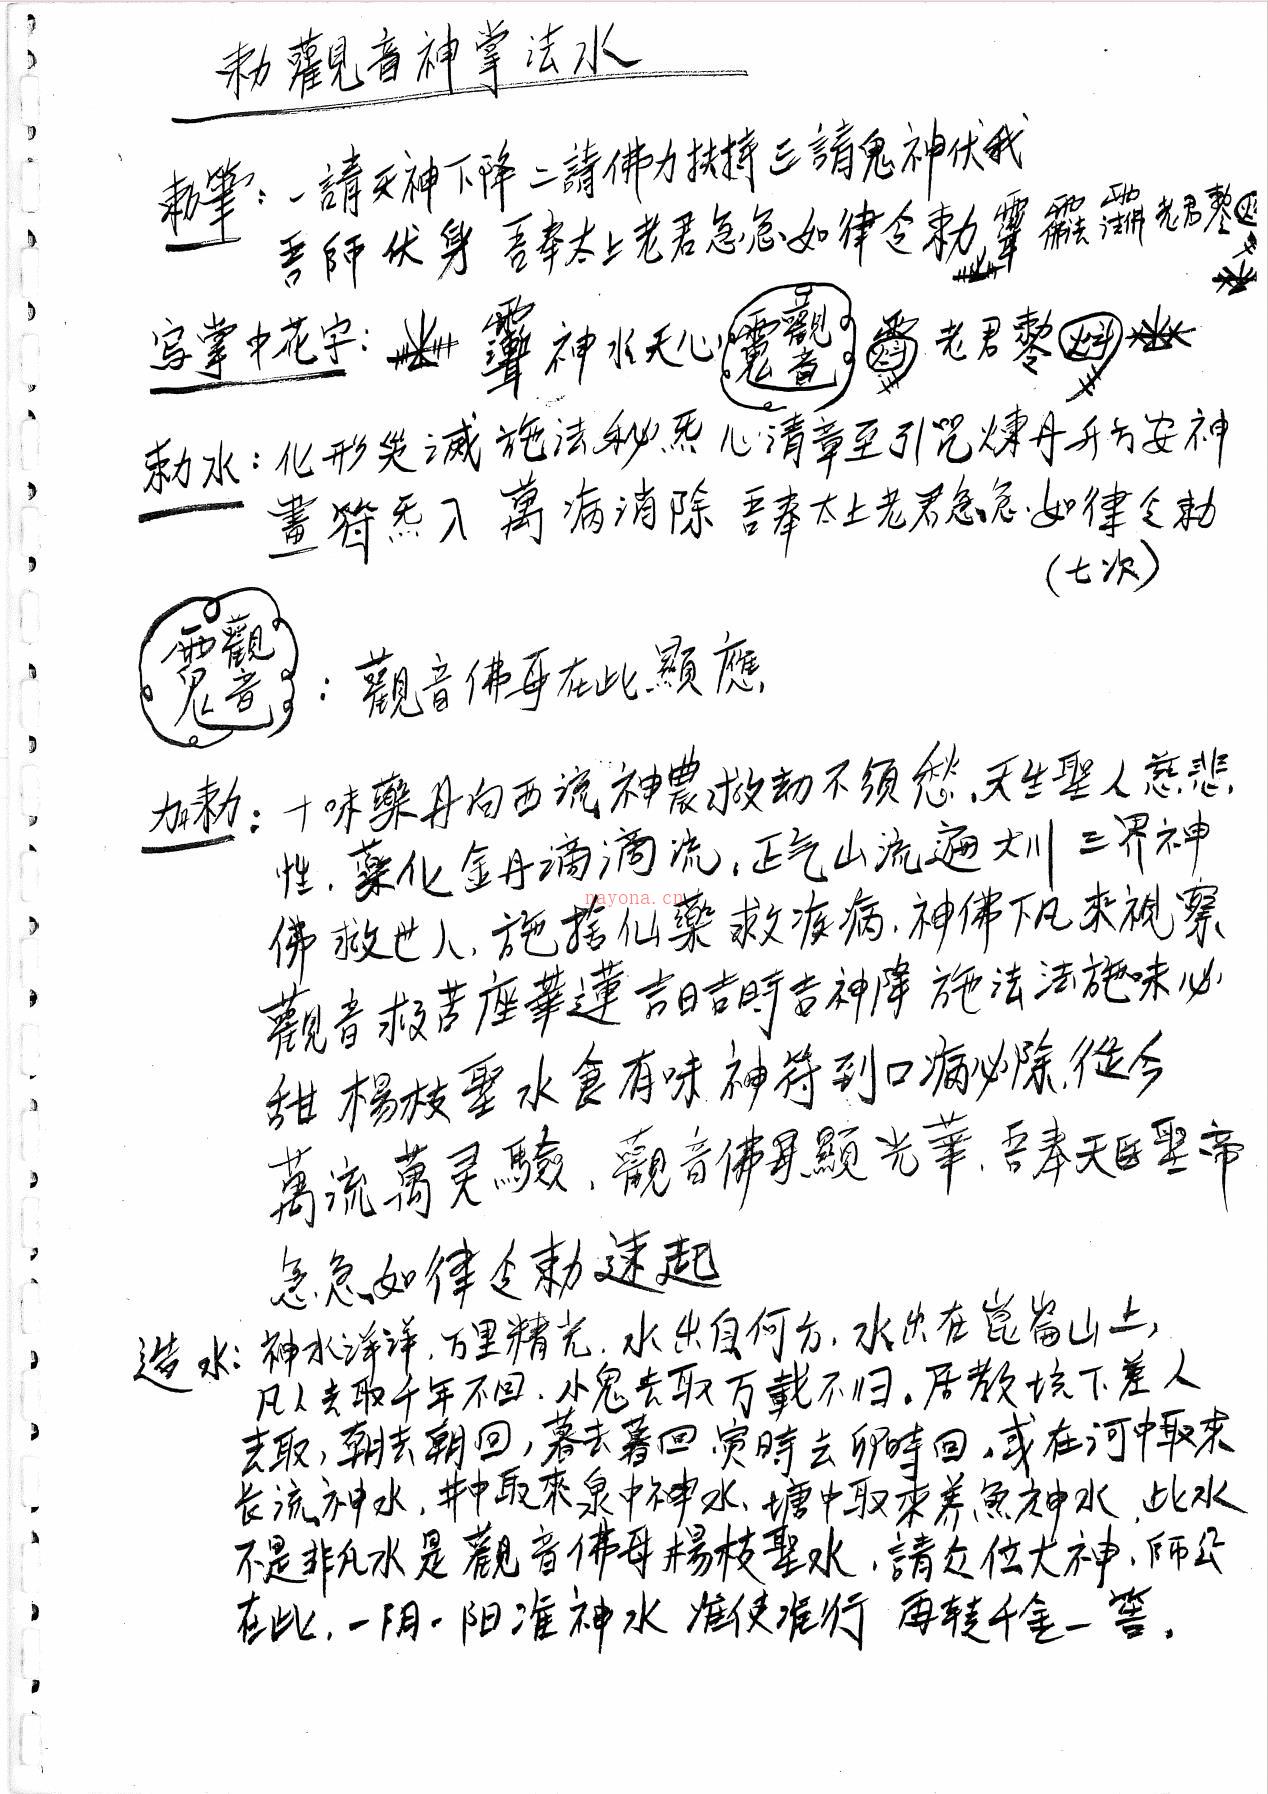 勅觀音神掌法水
勅筆：一請天神下降二請佛力扶持三請鬼神伏我
吾師伏身 吾奉太上老君急急如律令勅 老君
写掌中花字： 神水天心 觀音 老君
勅水：化形災滅施法秘炁心清章至引咒煉丹升方安神
畫符炁入 萬病消除 吾奉太上老君急急如律令勅
(七次)
觀音：觀音佛母在此顯應
加勅：十味藥丹向西流神農救劫不須愁，天生聖人慈悲
性，藥化金丹滴滴流，正气山流遍大川 三界神
佛救世人，施捨仙藥救疾病，神佛下凡來視察
觀音救苦座華蓮 吉日吉時吉神降 施法法施味必
甜 楊枝聖水食有味 神符到口病必除，從今
萬流萬灵驗，觀音佛母顯光華，吾奉天医聖帝
急急如律令勅速起
造水：神水洋洋，万里精光，水出自何方，水出在崑崙山上，
凡人去取千年不回，小鬼去取万載不归。居教坛下差人
去取，朝去朝回，暮去暮回 寅時去卯時回，或在河中取來
長流神水，井中取來泉中神水，塘中取來养魚神水，此水
不是非凡水是觀音佛母楊枝聖水，請众位大神，師公
在此，一阴一阳准神水 准使准行 再轉千金一筶。
nayona.cn